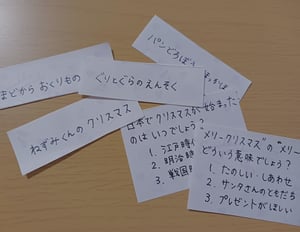 パンどろぼう
まどから おくりもの
ぐりとぐらのえんそく
ねずみくんの クリスマス
日本でクリスマスが始まった
のは いつでしょう？
1. 江戸時
2. 明治時
3. 戦国
"メリークリスマス"の "メリー
どういう意味でしょう？
1. たのしい・しあわせ
2. サンタさんのともだち
3. プレゼントがほしい